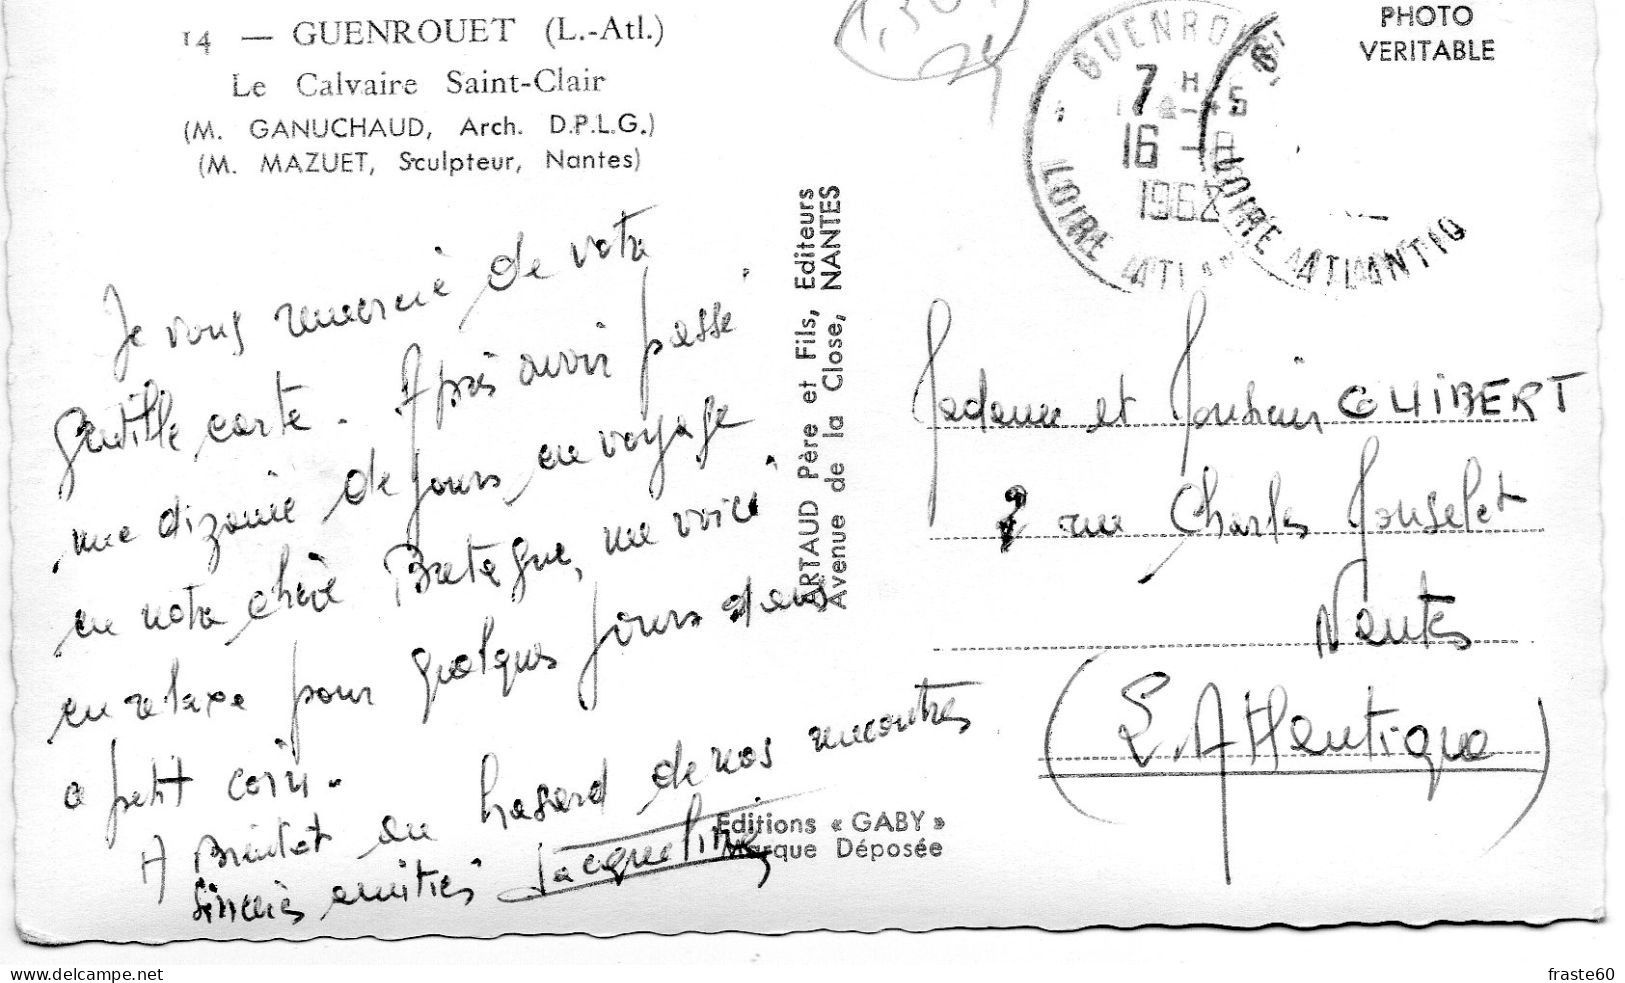 14 — GUENROUET (L.-Atl.)
Le Calvaire Saint-Clair
(M. GANUCHAUD, Arch. D.P.L.G.)
(M. MAZUET, Sculpteur, Nantes)
Je vous remercie de votre
gentille carte. Après avoir passé
une dizaine de jours en voyage
en notre chère Bretagne, me voici
en relaxe pour quelques jours dans
a petit coin.
A Bientôt au hasard de nos rencontres
Sincères amitiés Jacqueline
ARTAUD Père et Fils, Editeurs
Avenue de la Close, NANTES
Editions « GABY »
Marque Déposée
PHOTO
VERITABLE
GUENROUET
7 H
16 - 8
1962
LOIRE ATLAN
LOIRE ATLANTIQ
Madame et Monsieur GUIBERT
2 rue Charles Monselet
Nantes
(L. Atlentique)
fraste60